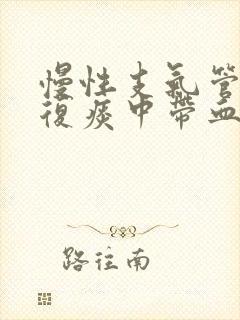 慢性支氣管
復痰中帶血
路往南